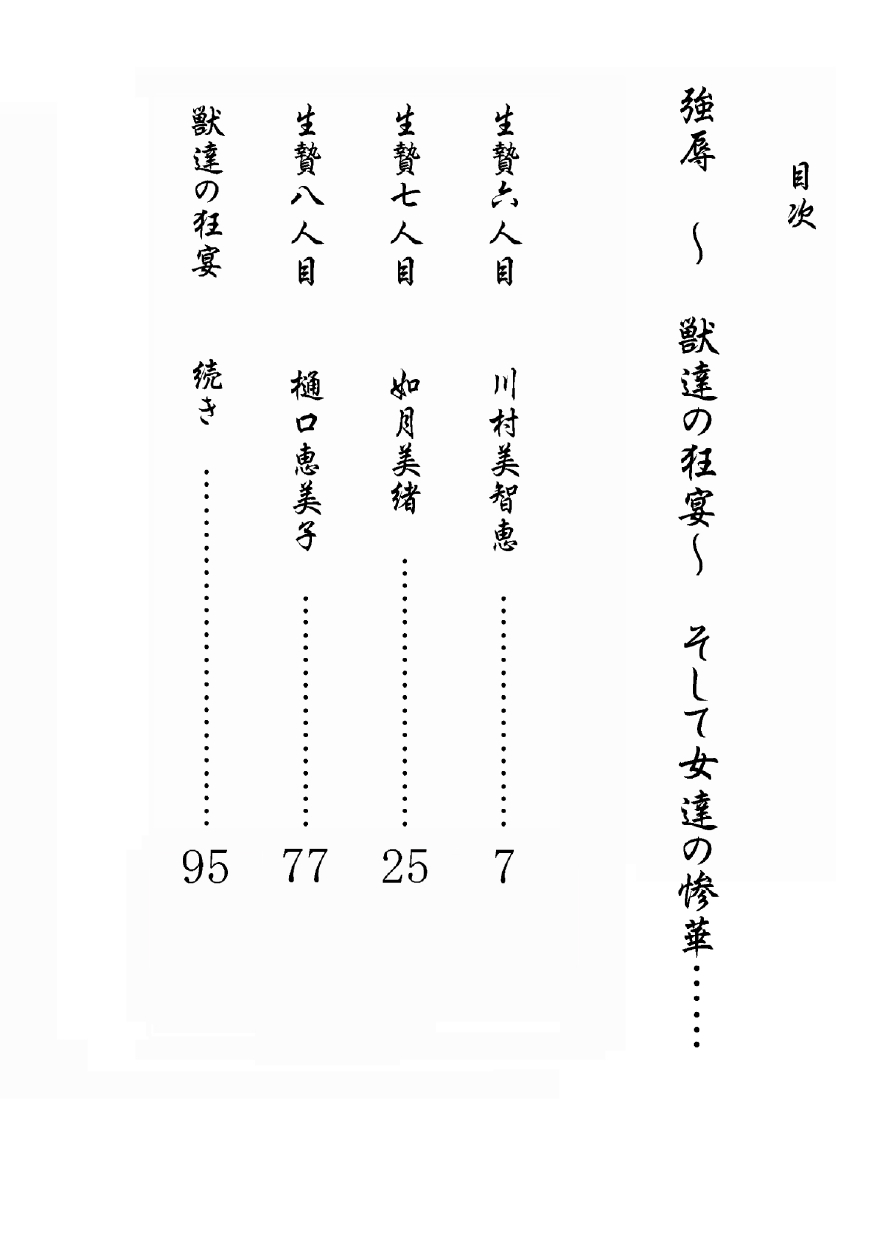 目次
強辱　～　獣達の狂宴～　そして女達の惨華……
生贄六人目　川村美智恵……………………7
生贄七人目　如月美緒………………………25
生贄八人目　樋口恵美子……………………77
獣達の狂宴　続き……………………………95